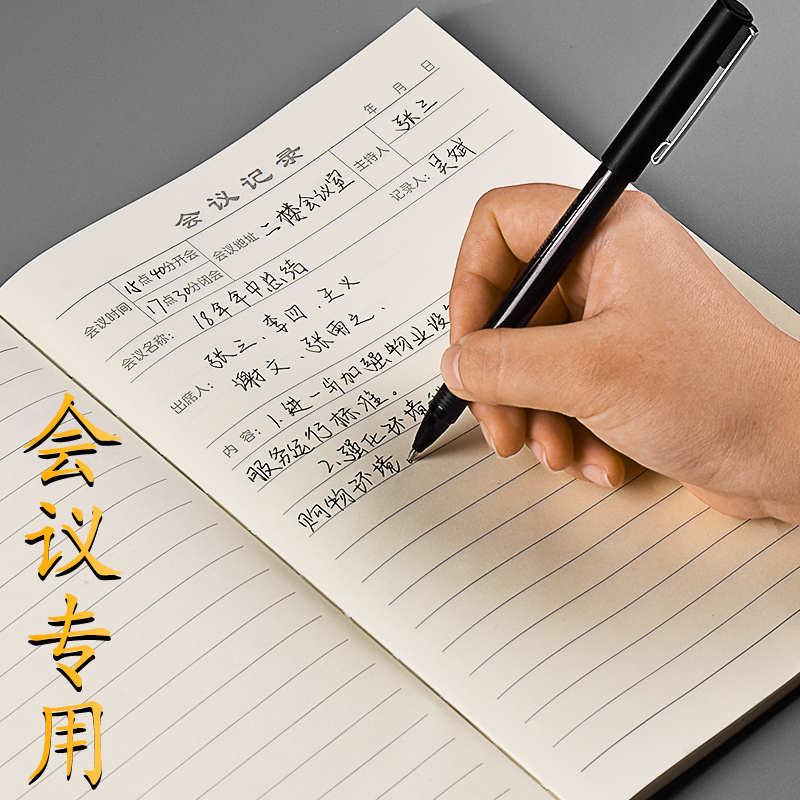 年 月 日
会议记录
会议时间 15点40分开会 会议地址 二楼会议室 主持人 张三
17点30分闭会 记录人: 吴斌
会议名称: 18年年中总结
出席人: 张三、李四、王义
谢文、张雨之、
内 容: 1.进一步加强物业设
服务运行标准。
2.强化环境
购物环境
会议专用